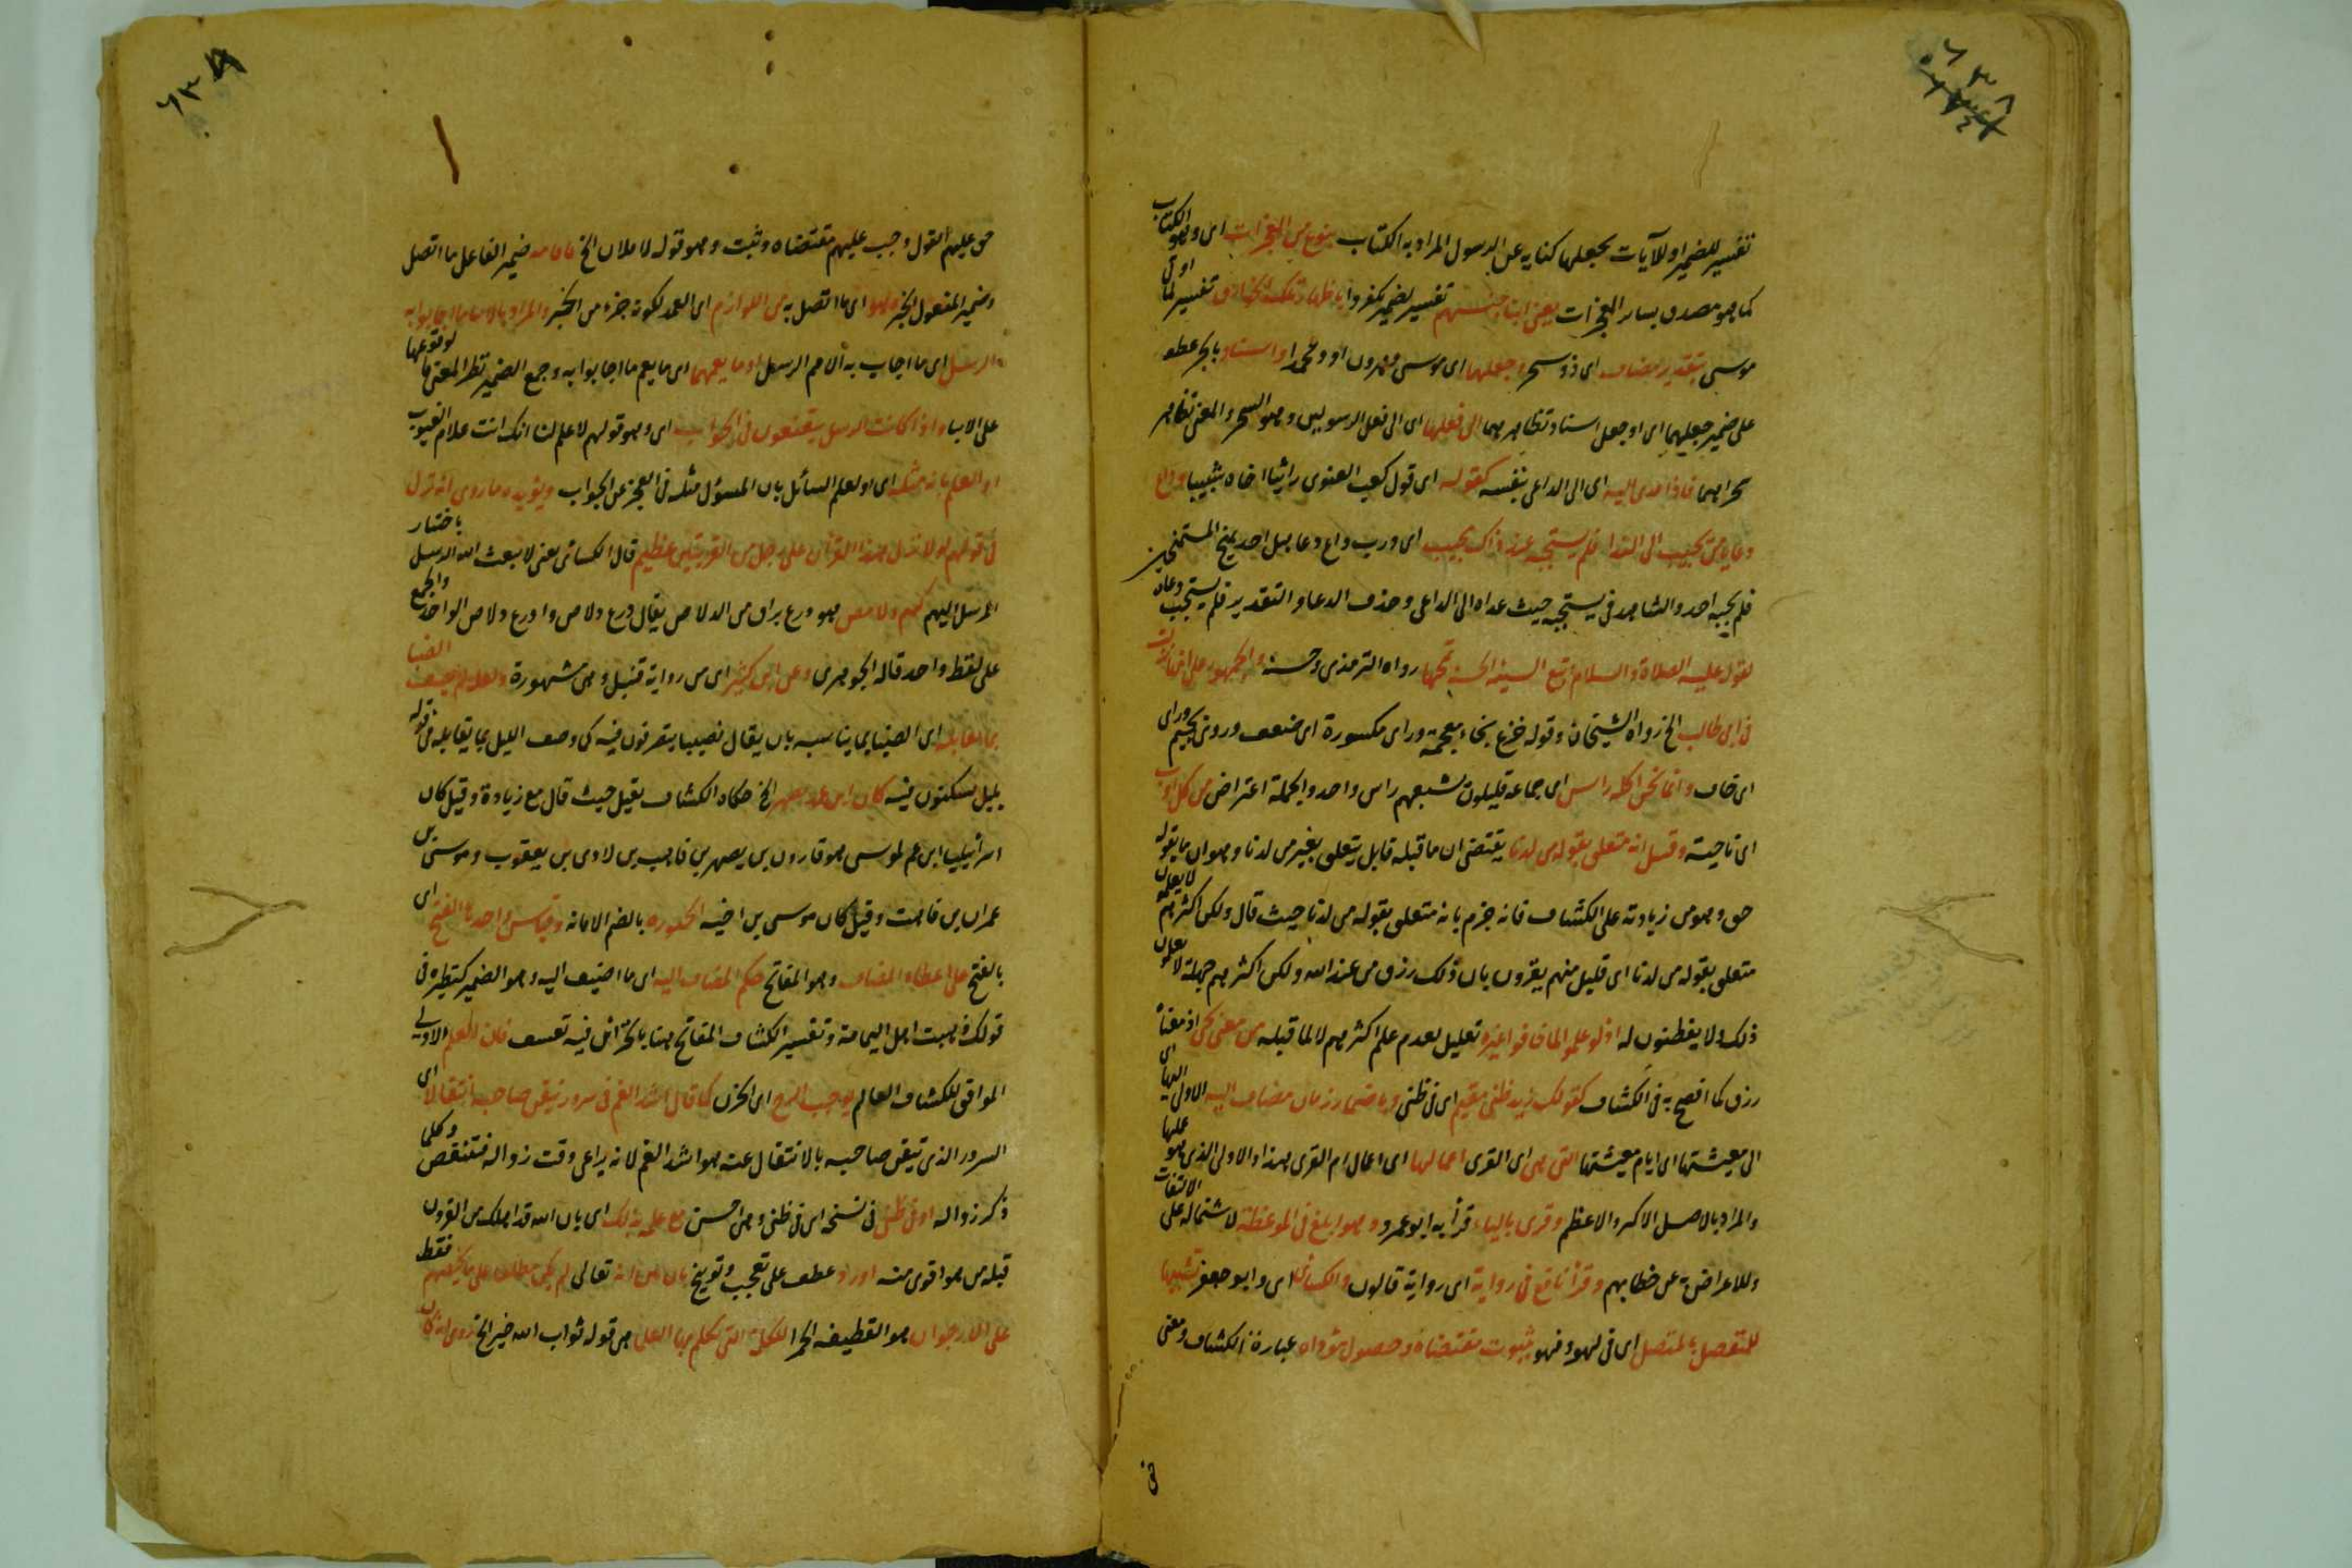 ٦٣٨
تفسير للضمير او للآيات بجعلها كناية عن الرسول المراد به الكتاب بنوع من المعجزات اى وهو الكتاب
كما هو مصدق بسائر المعجزات يعنى ابناء جنسهم تفسير لضمير يكفروا باظهار تلك الخوارق تفسير لما اوتى
موسى بتقدير مضاف اى ذو سحر او جعلهما اى موسى وهرون او ومحمدا واسناد بالجر عطف
على ضمير جعلهما اى او جعل اسناد تظاهرهما الى فعلهما اى الى فعل الرسولين وهو السحر والمعنى تظاهر
سحراهما فاذا عدى اليه اى الى الداعى بنفسه كقوله اى قول كعب الغنوى راثيا اخاه شبيبا وداع
دعا يا من يجيب الى الندا فلم يستجبه عند ذاك مجيب اى ورب داع دعا هل احد يمنح المستمنحين
فلم يجبه احد والشاهد فى يستجبه حيث عداه الى الداعى وحذف الدعا والتقدير فلم يستجب دعاه
لقوله عليه الصلاة والسلام اتبع السيئة الحسنة تمحها رواه الترمذى وحسنه والجمهور على انها نزلت
فى ابى طالب الخ رواه الشيخان وقوله خزع بخاء معجمة وراى مكسورة اى ضعف وروى بجيم وراى
اى خاف وانما نحن اكلة راس اى جماعة قليلون تشبعهم راس واحد والجملة اعتراض من كل اوب
اى ناحية وقيل انه متعلق بقوله من لدنا يقتضى ان ما قبله قابل بتعلق بغير من لدنا وهو ان ما يقوله
حق وهو من زيادته على الكشاف فانه جزم بانه متعلق بقوله من لدنا حيث قال ولكن اكثرهم لا يعلمون
متعلق بقوله من لدنا اى قليل منهم يقرون بان ذلك رزق من عند الله ولكن اكثرهم جهلة لا يعلمون
ذلك ولا يفطنون له اذ لو علموا لما خافوا غيره تعليل لعدم علم اكثرهم لا لما قبله من معنى يجبى اذ معناه
رزق كما افصح به فى الكشاف كقولك زيد ظنى مقيم اى فى ظنى او باضمار زمان مضاف اليه الاولى اليها اى
الى معيشتها اى ايام معيشتها التى هى اى القرى اعمالها اى اعمال ام القرى هذا والاولى الذى هو عليها
والمراد بالاصل الاكبر والاعظم وقرى بالياء قرأ به ابو عمرو وهو ابلغ فى الموعظة لاشتماله على الالتفات
وللاعراض به عن خطابهم وقرأ نافع فى رواية اى رواية قالون والكسائى اى وابو جعفر تشبيها
للمنفصل بالمتصل اى فى لهو وفهو بثبوت مقتضاه وحصول مؤداه عبارة الكشاف ومعنى
فى
٦٣٩
حق عليهم القول وجب عليهم مقتضاه وثبت وهو قوله لاملان الخ ضمير الفاعل ما اتصل
وضمير المفعول الخبر وهو اى ما اتصل به من اللوازم اى العمد لكونه جزء من الخبر والمراد بالانباء ما اجابوا به
الرسل اى ما اجاب به الامم الرسل او ما يعمها اى ما يعم ما اجابوا به وجمع الضمير نظرا لمعنى ما لوقوعها
على الانباء واذا كانت الرسل يتعتعون فى الجواب اى وهو قولهم لا علم لنا انك انت علام الغيوب
او العلم بانه مثله اى او لعلم السائل بان المسؤل مثله فى العجز عن الجواب ويؤيده ما روى انه نزل
فى قولهم لولا نزل هذا القرآن على رجل من القريتين عظيم قال الكسائى يعنى لا يبعث الله الرسل باختيار
المرسل اليهم كهم دلامص هو درع براق من الدلاص يقال درع دلاص وادرع دلاص الواحد والجمع
على لفظ واحد قاله الجوهرى وعن ابن كثير اى من رواية قنبل وهى مشهورة ولعله لم يصف الضيا
بما يقابله اى الضيا بما يناسبه بان يقال نصيبا يتصرفون فيه كى وصف الليل بما يقابله فى قوله
بليل تسكنون فيه كان ابن عمه يصهر الخ حكاه الكشاف بقيل حيث قال مع زيادة وقيل كان
اسرائيليا ابن عم لموسى هو قارون بن يصهر بن قاهث بن لاوى بن يعقوب وموسى بن
عمران بن قاهث وقيل كان موسى بن اخيه الحبورة بالضم الامامة وقياس واحده الفتح اى
بالفتح على اعطاء المضاف وهو المفاتح حكم المضاف اليه اى ما اضيف اليه وهو الضمير كنظيره فى
قولك ذهبت اهل اليمامة وتفسير الكشاف المفاتح هنا بالخزائن فيه تعسف فان العلم الاولى
الموافق للكشاف العالم يوجب الترح اى الحزن كما قال اشد الغم فى سرور تيقن صاحبه انتقالا اى
السرور الذى تيقن صاحبه بالانتقال عنه هو اشد الغم لانه يراعى وقت زواله فتنغص وكلما
ذكر زواله او فى ظنى فى نسخة اى فى ظنى وهى احسن مع علمه بذلك اى بان الله قد اهلك من القرون
قبله من هو اقوى منه او رد عطف على تعجب وتوبيخ بان انه تعالى لم يكن مطلعا على ما يخصهم فقط
على الارجوان هو القطيفة الحمرا للكلمة التى تكلم بها العلماء هى قوله ثواب الله خير الخ روى انه كان